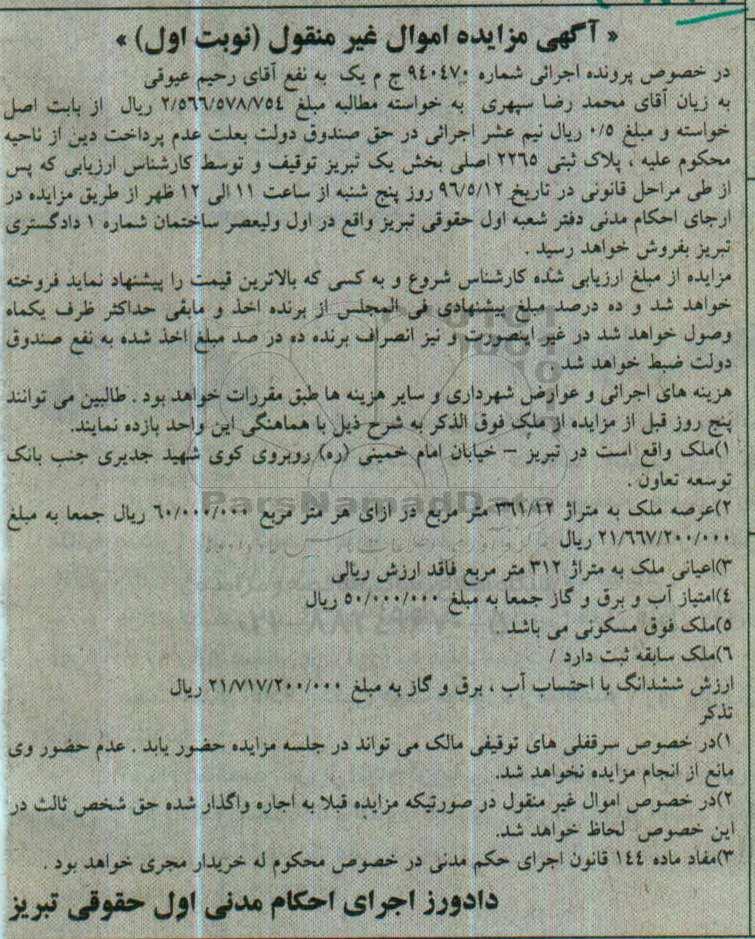 « آگهی مزایده اموال غیر منقول (نوبت اول) »
در خصوص پرونده اجرائی شماره ۹٤۰٤۷۰ ج م یک به نفع آقای رحیم عیوقی
به زیان آقای محمد رضا سپهری به خواسته مطالبه مبلغ ۲/٥٦٦/٥۷۸/۷٥٤ ریال از بابت اصل
خواسته و مبلغ ۰/٥ ریال نیم عشر اجرائی در حق صندوق دولت بعلت عدم پرداخت دین از ناحیه
محکوم علیه ، پلاک ثبتی ۲۲٦٥ اصلی بخش یک تبریز توقیف و توسط کارشناس ارزیابی که پس
از طی مراحل قانونی در تاریخ ۹٦/٥/۱۲ روز پنج شنبه از ساعت ۱۱ الی ۱۲ ظهر از طریق مزایده در
ارجای احکام مدنی دفتر شعبه اول حقوقی تبریز واقع در اول ولیعصر ساختمان شماره ۱ دادگستری
تبریز بفروش خواهد رسید .
مزایده از مبلغ ارزیابی شده کارشناس شروع و به کسی که بالاترین قیمت را پیشنهاد نماید فروخته
خواهد شد و ده درصد مبلغ پیشنهادی فی المجلس از برنده اخذ و مابقی حداکثر ظرف یکماه
وصول خواهد شد در غیر اینصورت و نیز انصراف برنده ده در صد مبلغ اخذ شده به نفع صندوق
دولت ضبط خواهد شد
هزینه های اجرائی و عوارض شهرداری و سایر هزینه ها طبق مقررات خواهد بود . طالبین می توانند
پنج روز قبل از مزایده از ملک فوق الذکر به شرح ذیل با هماهنگی این واحد بازده نمایند.
۱)ملک واقع است در تبریز – خیابان امام خمینی (ره) روبروی کوی شهید جدیری جنب بانک
توسعه تعاون .
ParsNamadData
۲)عرصه ملک به متراژ ۳٦۱/۱۲ متر مربع در ازای هر متر مربع ٦۰/۰۰۰/۰۰۰ ریال جمعا به مبلغ
۲۱/٦٦۷/۲۰۰/۰۰۰ ریال
۳)اعیانی ملک به متراژ ۳۱۲ متر مربع فاقد ارزش ریالی
٤)امتیاز آب و برق و گاز جمعا به مبلغ ٥۰/۰۰۰/۰۰۰ ریال
٥)ملک فوق مسکونی می باشد .
٦)ملک سابقه ثبت دارد /
ارزش ششدانگ با احتساب آب ، برق و گاز به مبلغ ۲۱/۷۱۷/۲۰۰/۰۰۰ ریال
تذکر
۱)در خصوص سرقفلی های توقیفی مالک می تواند در جلسه مزایده حضور یابد . عدم حضور وی
مانع از انجام مزایده نخواهد شد.
۲)در خصوص اموال غیر منقول در صورتیکه مزایده قبلا به اجاره واگذار شده حق شخص ثالث در
این خصوص لحاظ خواهد شد.
۳)مفاد ماده ۱٤٤ قانون اجرای حکم مدنی در خصوص محکوم له خریدار مجری خواهد بود .
دادورز اجرای احکام مدنی اول حقوقی تبریز